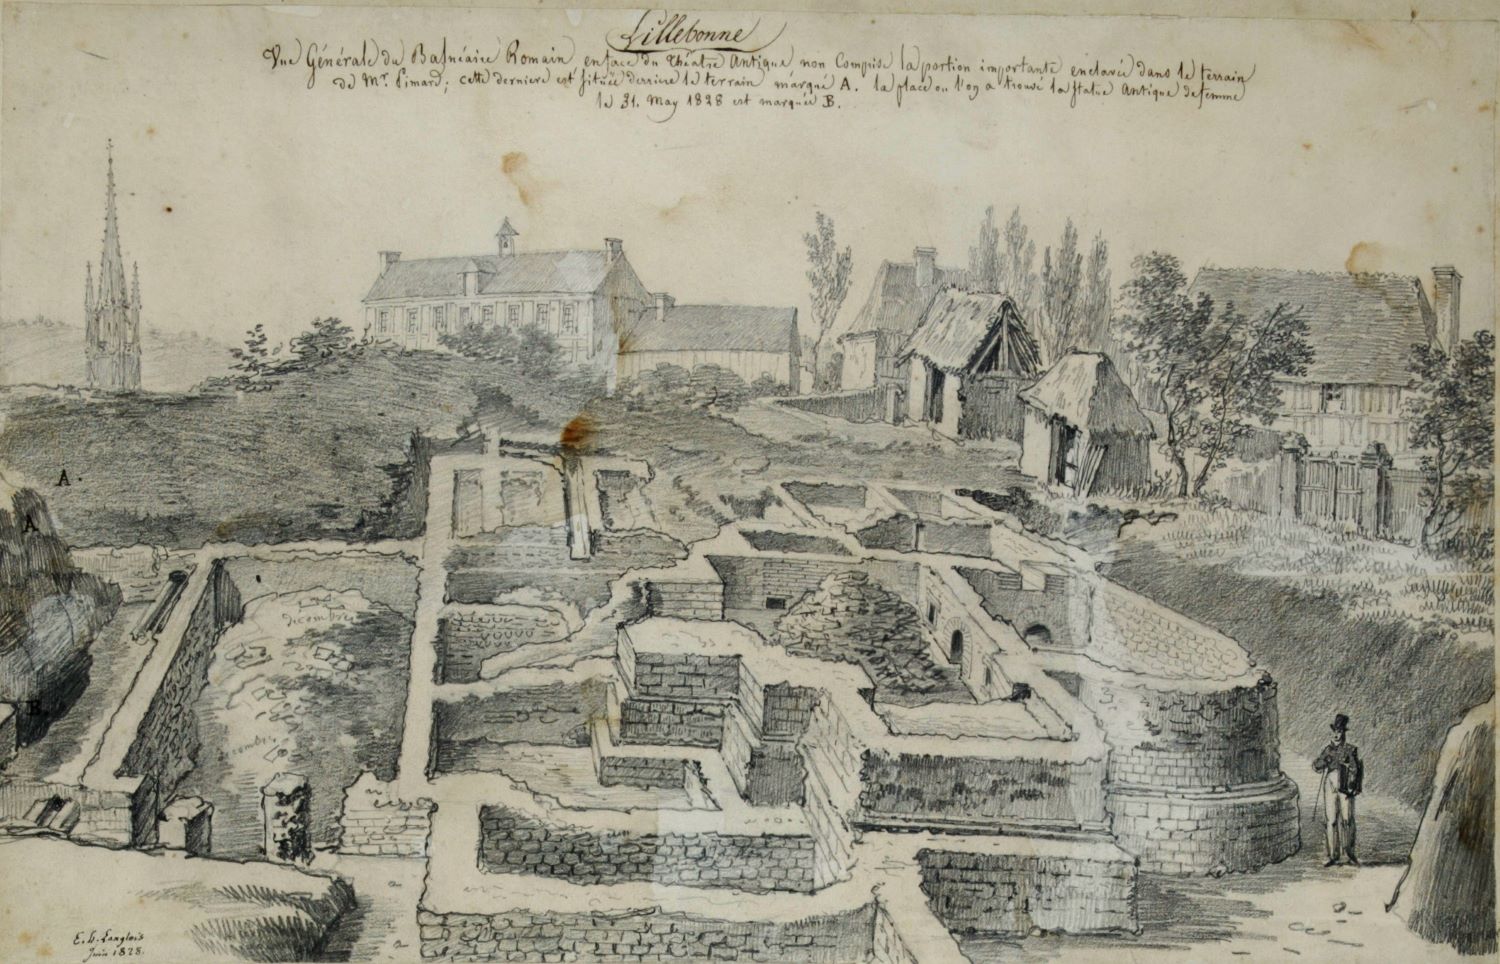 Lillebonne
Vue Générale du Balnéaire Romain, en face du Théatre Antique non Comprise la portion importante enclavée dans le terrain
de Mr. Pimard; cette derniere est située derriere le terrain márqué A. la place ou l'on a trouvé la statue Antique de femme
le 31. May 1828 est marquée B.
A.
A
B
decombres
decombres
E. H. Langlois
Juin 1828.